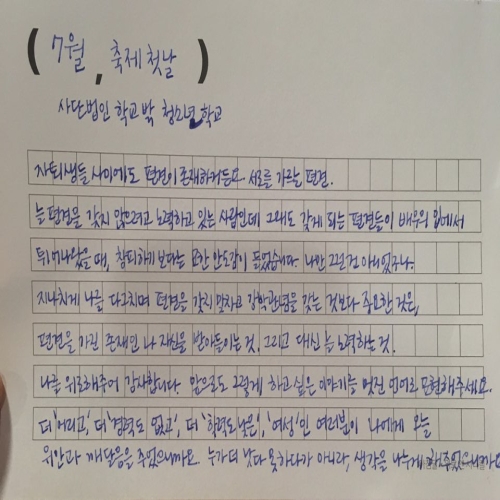 (7월, 축제 첫날)
사단법인 학교 밖 청소년 학교
자퇴생들 사이에도 편견이 존재하거든요. 서로를 가르는 편견.
늘 편견을 갖지 않으려고 노력하고 있는 사람인데 그래도 갖게 되는 편견들이 배우의 입에서
튀어나왔을 때, 창피하기보다는 묘한 안도감이 들었습니다. 나만 그런 건 아니었구나.
지나치게 나를 다그치며 편견을 갖진 말자고 강박관념을 갖는 것보다 중요한 것은,
편견을 가진 존재인 나 자신을 받아들이는 것. 그리고 대신 늘 노력하는 것.
나를 위로해주어 감사합니다. 앞으로도 그렇게 하고 싶은 이야기를 멋진 언어로 표현해주세요.
더 '어리고', 더 '경력도 없고', 더 '학력도 낮은', '여성'인 여러분이 나에게 오늘
위안과 깨달음을 주었으니까요. 누가 더 낫다 못하다가 아니라, 생각을 나누게 해주었으니까요